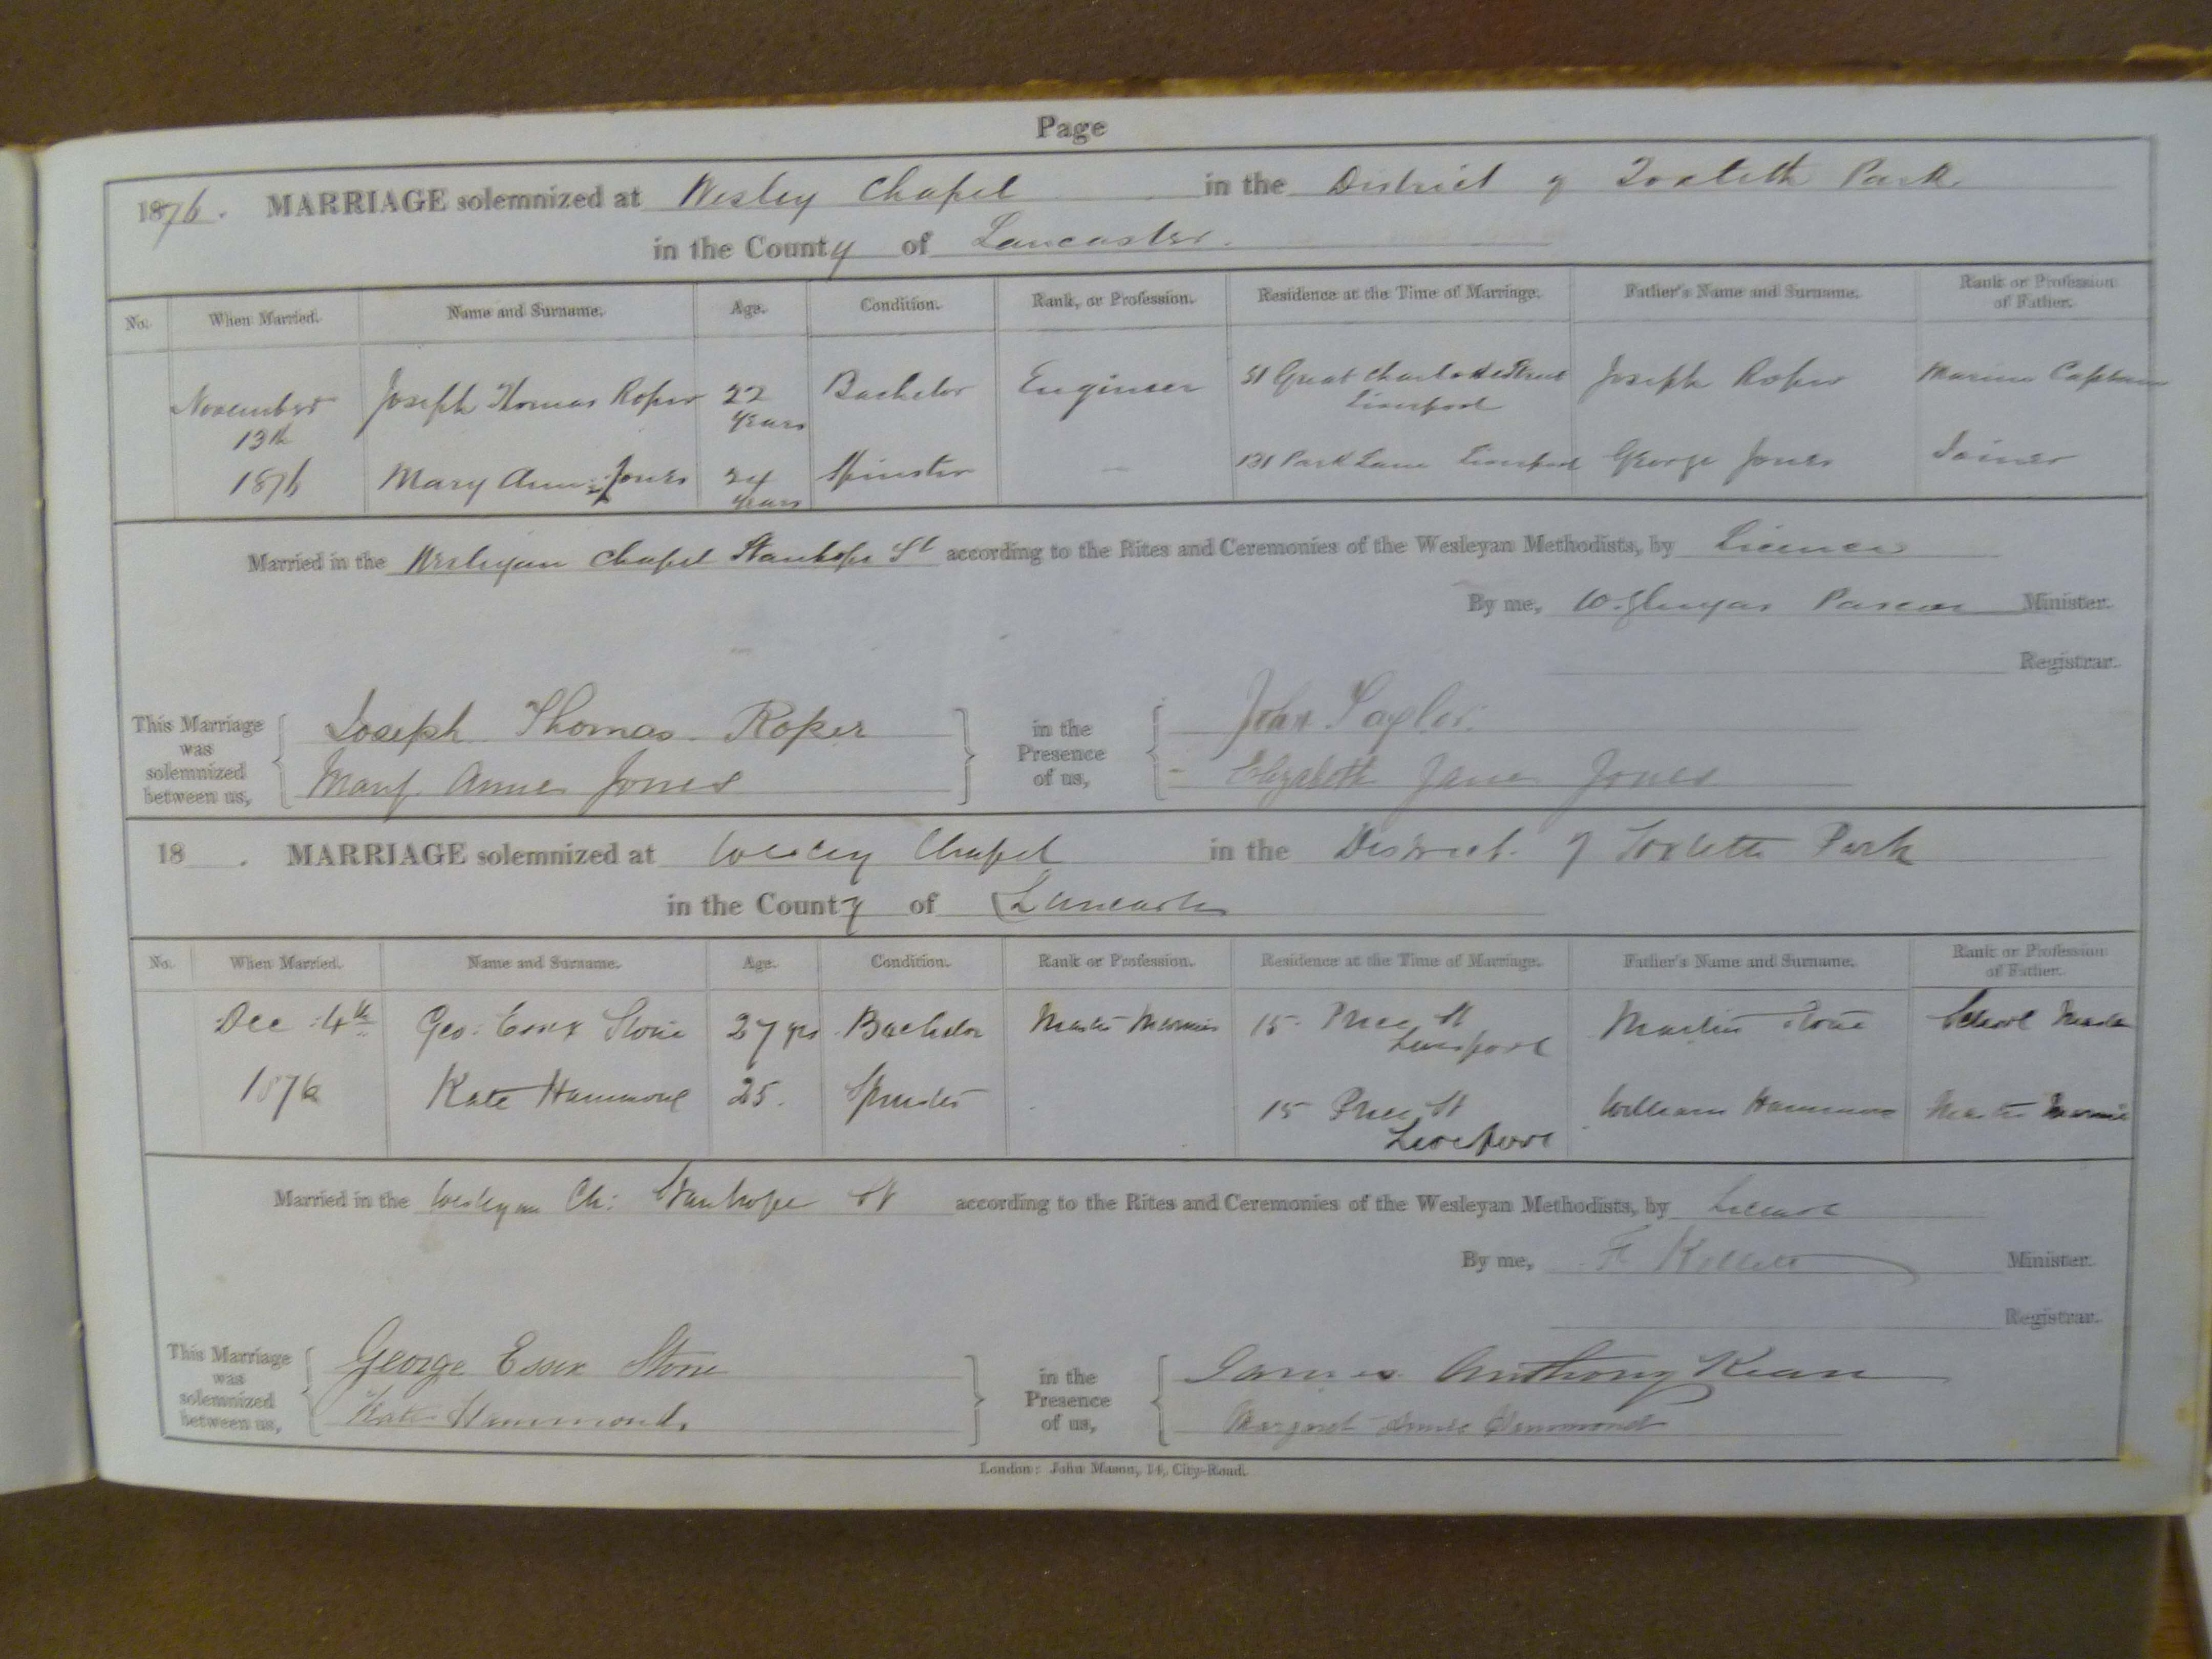 Page
1876. MARRIAGE solemnized at Wesley Chapel in the District of Toxteth Park
in the County of Lancaster.
No. When Married. Name and Surname. Age. Condition. Rank, or Profession. Residence at the Time of Marriage. Father's Name and Surname. Rank or Profession of Father.
November 13th 1876 Joseph Thomas Roper 22 years Bachelor Engineer 51 Great Charlotte Street Liverpool Joseph Roper Marine Captain
Mary Anne Jones 24 years Spinster — 131 Park Lane Liverpool George Jones Joiner
Married in the Wesleyan Chapel Stanhope St according to the Rites and Ceremonies of the Wesleyan Methodists, by Licence
By me, W. Minister.
Registrar.
This Marriage was solemnized between us, Joseph Thomas Roper
Mary Anne Jones
in the Presence of us, John Taylor.
Elizabeth Jane Jones
18 . MARRIAGE solemnized at Wesley Chapel in the District of Toxteth Park
in the County of Lancaster
No. When Married. Name and Surname. Age. Condition. Rank or Profession. Residence at the Time of Marriage. Father's Name and Surname. Rank or Profession of Father.
Dec 4th 1876 Geo: Essex Stone 27 yrs Bachelor Master Mariner 15 Price St Liverpool Martin Stone School Master
Kate Hammond 25. Spinster 15 Price St Liverpool William Hammond Master Mariner
Married in the Wesleyan Ch: Stanhope St according to the Rites and Ceremonies of the Wesleyan Methodists, by Licence
By me, F Kellett Minister.
Registrar.
This Marriage was solemnized between us, George Essex Stone
Kate Hammond.
in the Presence of us, James Anthony Kean
Margaret Annie Hammond
London: John Mason, 14, City-Road.